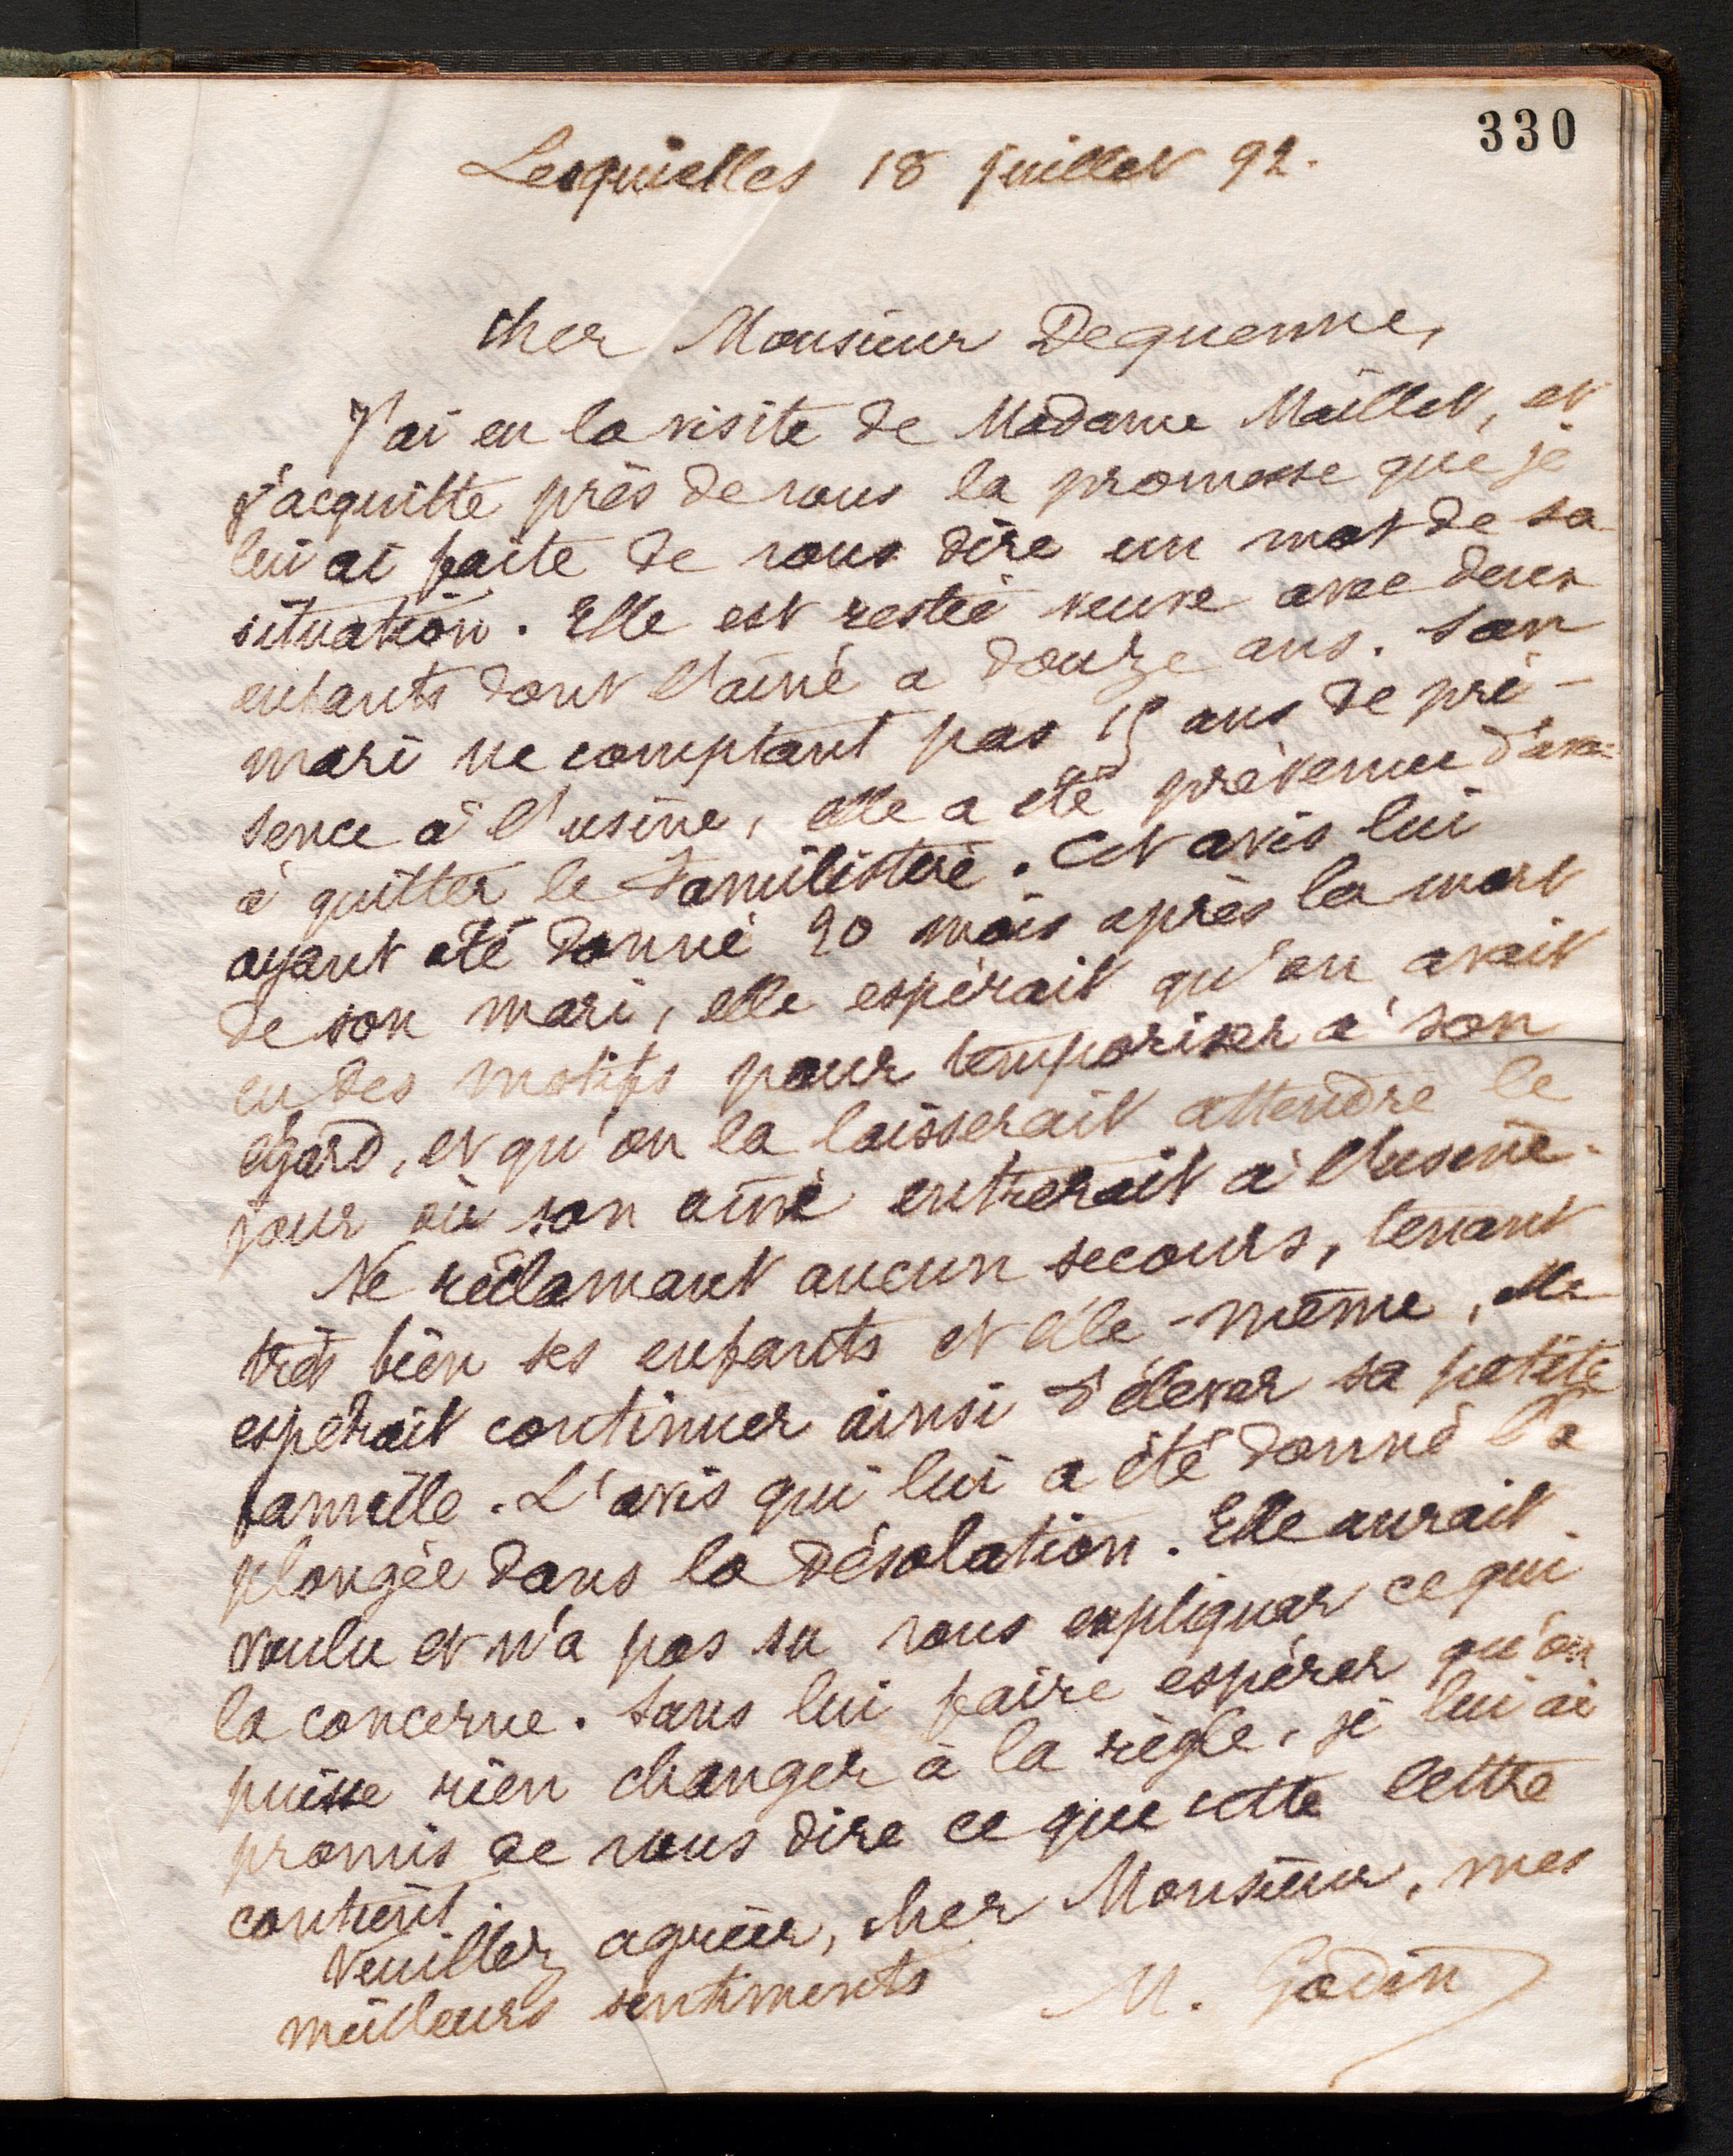 330
Lesquielles 18 juillet 92.
Cher Monsieur Dequenne,
J'ai eu la visite de Madame Maillet, et
j'acquitte près de vous la promesse que je
lui ai faite de vous dire un mot de sa
situation. Elle est restée veuve avec deux
enfants dont l'aîné a douze ans. Son
mari ne comptant pas 15 ans de pré-
sence à l'usine, elle a été prévenue d'avoir
à quitter le Familistère. Cet avis lui
ayant été donné 20 mois après la mort
de son mari, elle espérait qu'on avait
eu des motifs pour temporiser à son
égard, et qu'on la laisserait attendre le
jour où son aîné entrerait à l'usine.
Ne réclamant aucun secours, tenant
très bien ses enfants et elle-même, elle
espérait continuer ainsi d'élever sa petite
famille. L'avis qui lui a été donné l'a
plongée dans la désolation. Elle aurait
voulu et n'a pas su vous expliquer ce qui
la concerne. Sans lui faire espérer qu'on
puisse rien changer à la règle, je lui ai
promis de vous dire ce que cette lettre
contient.
Veuillez agréer, cher Monsieur, mes
meilleurs sentiments
M. Godin